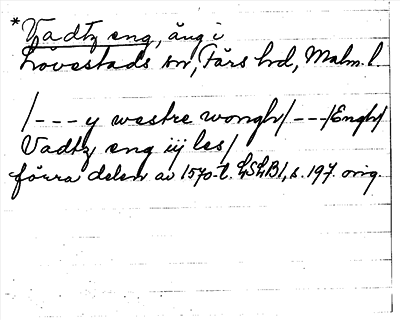 *Vadtz eng, äng i
Lövestads sn, Färs hd, Malm. l.
/--- y westre wongh/---/Engh/
Vadtz eng iij les/
förra delen av 1570-t. LSLB1, s. 197. orig.